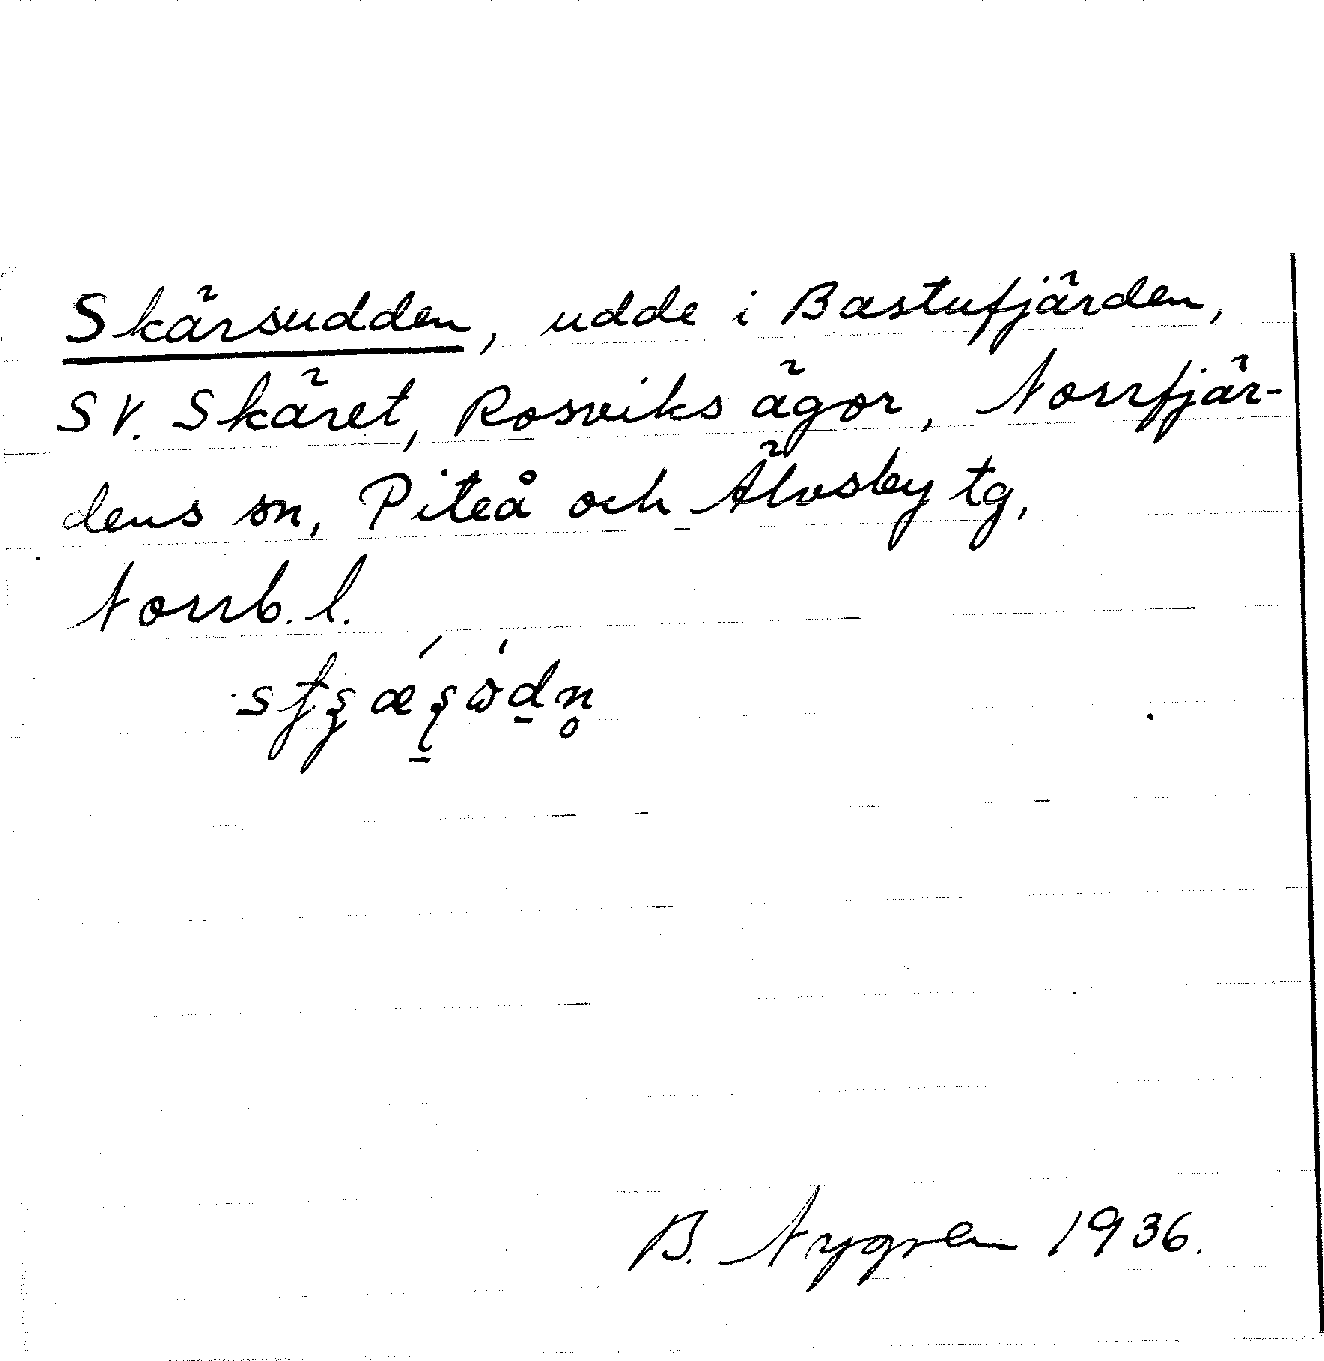 Skärsudden, udde i Bastufjärden,
SV. Skäret, Rosviks ägor, Norrfjär-
dens sn, Piteå och Älvsby tg,
Norrb. l.
B. Nygren 1936.